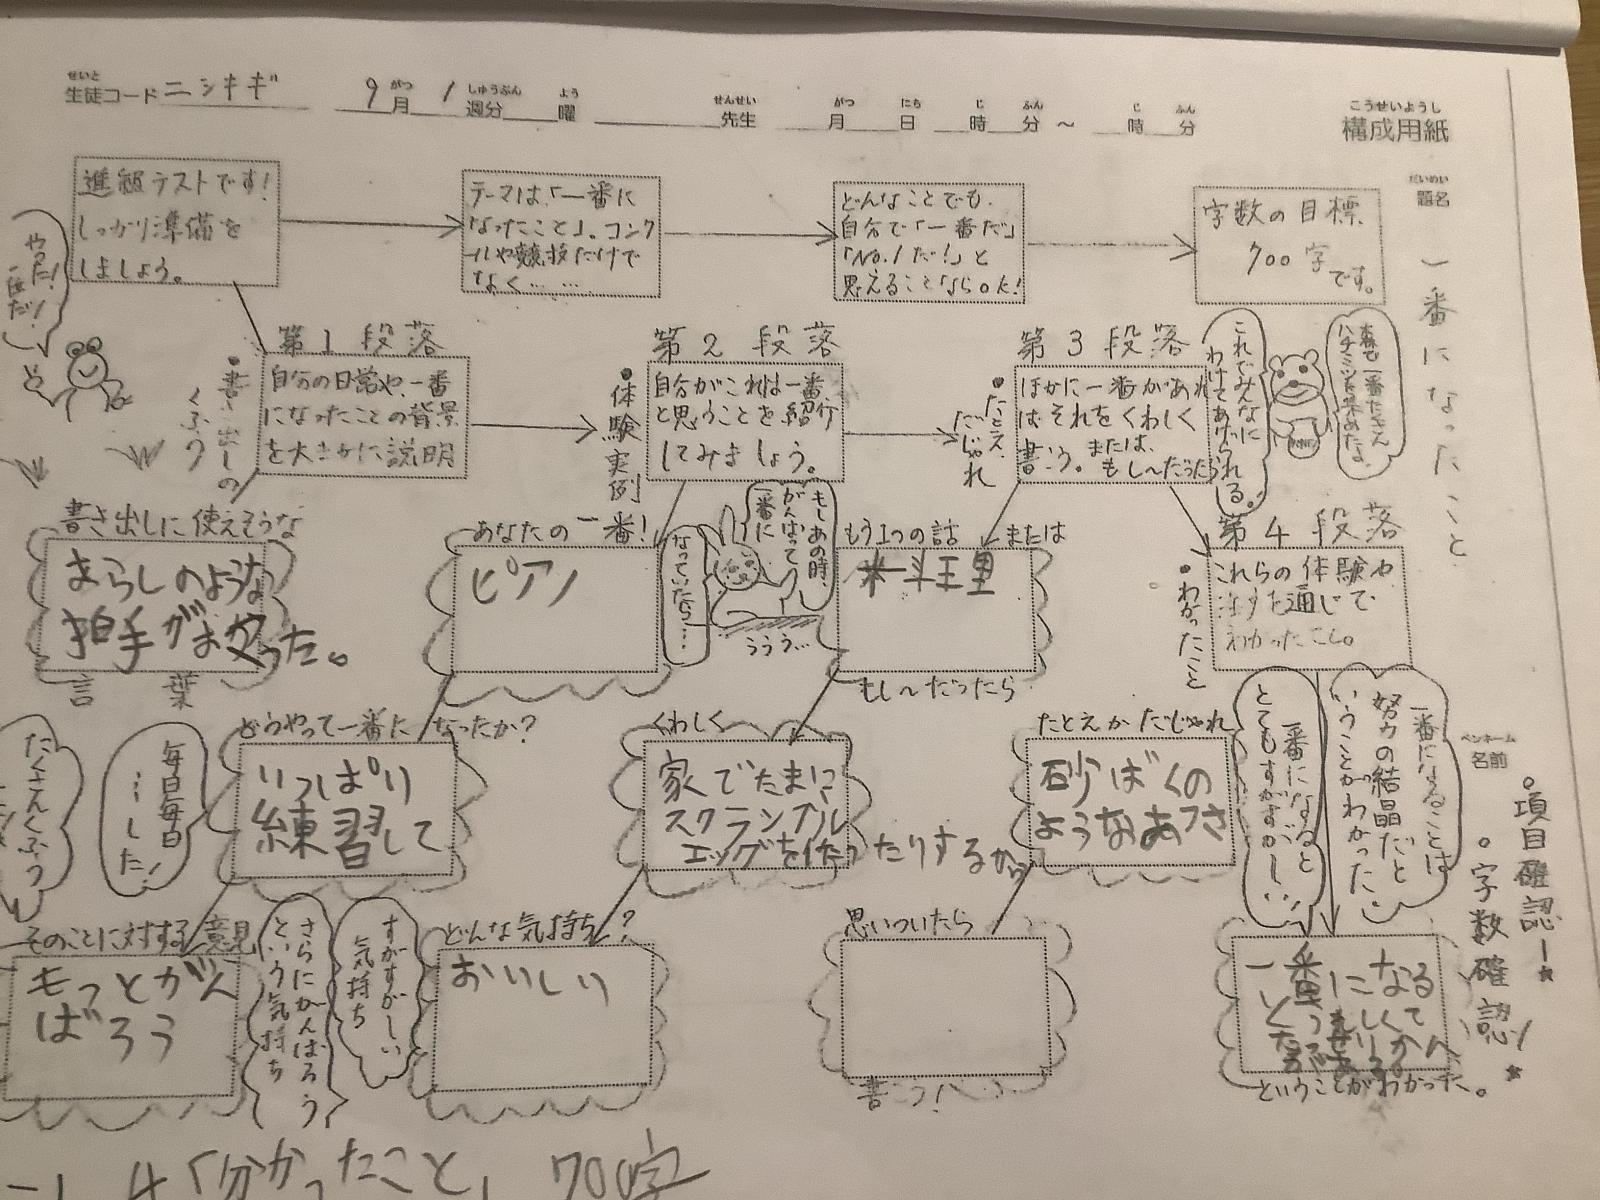 せいと
生徒コード ニシキギ
がつ しゅうぶん よう
9月 1週分 曜
せんせい
先生
がつ にち じ ふん じ ふん
月 日 時 分 ~ 時 分
こうせいようし
構成用紙
だいめい
題名
一番になったこと
ペンネーム
名前
。項目確認!★
。字数確認!★
進級テストです!
しっかり準備を
しましょう。
テーマは、「一番に
なったこと」。コンク
ールや競技だけで
なく……
どんなことでも、
自分で「一番だ」
「No.1だ!」と
思えることならOK!
字数の目標
700字
です。
やった!
一匹だ!
第1段落
自分の日常や、一番
になったことの背景
を大きかに説明
•書き出しの
くふう
第2段落
自分がこれは一番
と思うことを紹介
してみましょう。
•体験実例
第3段落
ほかに一番があれ
ばそれをくわしく
書こう。または、
もし〜だったら
•たとえ、
だじゃれ
これでみんなに
わけてあげられる。
森で一番たくさん
ハチミツを集めたよ。
第4段落
これらの体験や
を通じて
わかったこと。
•わかったこと
書き出しに使えそうな
あらしのような
拍手がおやった。
言葉
あなたの一番!
ピアノ
もしあの時、
がんばって
一番に
なっていたら…
ううう…
もう1つの話
または
料理
もし〜だったら
どうやって一番になったか?
いっぱい
練習して
毎日毎日
…した!
たくさんくふう
くわしく
家でたまに
スクランブル
エッグを作ったりするから
たとえかだじゃれ
砂ばくの
ようなあつさ
一番になると
とてもすがすがし…
一番になることは
努力の結晶だと
いうことがわかった…
そのことに対する意見
もっとがん
ばろう
さらにがんばろう
という気持ち
すがすがしい
気持ち
どんな気持ち?
おいしい
思いついたら
書こう!
一番になる
ということがわかった。
4「分かったこと」 700字